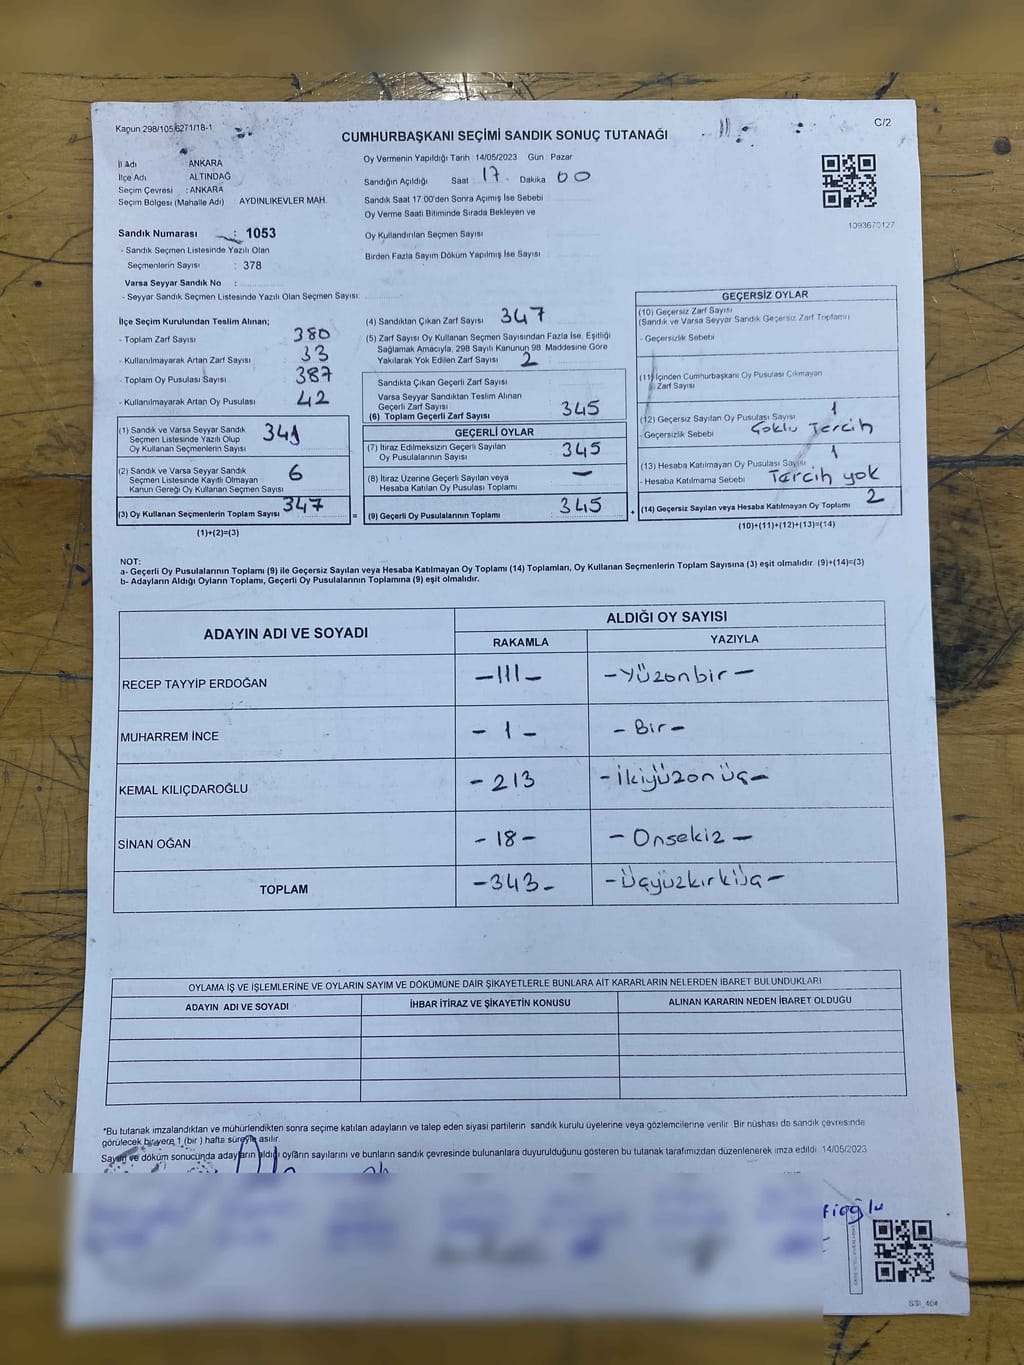 Kanun 298/105 6271/18-1
CUMHURBAŞKANI SEÇİMİ SANDIK SONUÇ TUTANAĞI
C/2
İl Adı ANKARA
İlçe Adı ALTINDAĞ
Seçim Çevresi : ANKARA
Seçim Bölgesi (Mahalle Adı) AYDINLIKEVLER MAH.
Oy Vermenin Yapıldığı Tarih 14/05/2023 Gün Pazar
Sandığın Açıldığı Saat 17 Dakika 00
Sandık Saat 17.00'den Sonra Açımış İse Sebebi
Oy Verme Saati Bitiminde Sırada Bekleyen ve
Oy Kullandırılan Seçmen Sayısı
Birden Fazla Sayım Döküm Yapılmış İse Sayısı
1093670127
Sandık Numarası : 1053
- Sandık Seçmen Listesinde Yazılı Olan
Seçmenlerin Sayısı : 378
Varsa Seyyar Sandık No :
- Seyyar Sandık Seçmen Listesinde Yazılı Olan Seçmen Sayısı:
İlçe Seçim Kurulundan Teslim Alınan;
- Toplam Zarf Sayısı 380
- Kullanılmayarak Artan Zarf Sayısı 33
- Toplam Oy Pusulası Sayısı 387
- Kullanılmayarak Artan Oy Pusulası 42
(1) Sandık ve Varsa Seyyar Sandık
Seçmen Listesinde Yazılı Olup
Oy Kullanan Seçmenlerin Sayısı 341
(2) Sandık ve Varsa Seyyar Sandık
Seçmen Listesinde Kayıtlı Olmayan
Kanun Gereği Oy Kullanan Seçmen Sayısı 6
(3) Oy Kullanan Seçmenlerin Toplam Sayısı 347
(1)+(2)=(3)
(4) Sandıktan Çıkan Zarf Sayısı 347
(5) Zarf Sayısı Oy Kullanan Seçmen Sayısından Fazla İse, Eşitliği
Sağlamak Amacıyla, 298 Sayılı Kanunun 98. Maddesine Göre
Yakılarak Yok Edilen Zarf Sayısı 2
Sandıkta Çıkan Geçerli Zarf Sayısı
Varsa Seyyar Sandıktan Teslim Alınan
Geçerli Zarf Sayısı
(6) Toplam Geçerli Zarf Sayısı 345
GEÇERLİ OYLAR
(7) İtiraz Edilmeksizin Geçerli Sayılan
Oy Pusulalarının Sayısı 345
(8) İtiraz Üzerine Geçerli Sayılan veya
Hesaba Katılan Oy Pusulası Toplamı -
= (9) Geçerli Oy Pusulalarının Toplamı 345
GEÇERSİZ OYLAR
(10) Geçersiz Zarf Sayısı
(Sandık ve Varsa Seyyar Sandık Geçersiz Zarf Toplamı)
- Geçersizlik Sebebi
(11) İçinden Cumhurbaşkanı Oy Pusulası Çıkmayan
Zarf Sayısı
(12) Geçersiz Sayılan Oy Pusulası Sayısı 1
- Geçersizlik Sebebi Çoklu Tercih
(13) Hesaba Katılmayan Oy Pusulası Sayısı 1
- Hesaba Katılmama Sebebi Tercih yok
+ (14) Geçersiz Sayılan veya Hesaba Katılmayan Oy Toplamı 2
(10)+(11)+(12)+(13)=(14)
NOT:
a- Geçerli Oy Pusulalarının Toplamı (9) ile Geçersiz Sayılan veya Hesaba Katılmayan Oy Toplamı (14) Toplamları, Oy Kullanan Seçmenlerin Toplam Sayısına (3) eşit olmalıdır. (9)+(14)=(3)
b- Adayların Aldığı Oyların Toplamı, Geçerli Oy Pusulalarının Toplamına (9) eşit olmalıdır.
ADAYIN ADI VE SOYADI ALDIĞI OY SAYISI
RAKAMLA YAZIYLA
RECEP TAYYİP ERDOĞAN -111- -Yüzonbir-
MUHARREM İNCE - 1 - - Bir -
KEMAL KILIÇDAROĞLU - 213 -İkiyüzonüç-
SİNAN OĞAN - 18 - - Onsekiz -
TOPLAM -343- -Üçyüzkırküç-
OYLAMA İŞ VE İŞLEMLERİNE VE OYLARIN SAYIM VE DÖKÜMÜNE DAİR ŞİKAYETLERLE BUNLARA AİT KARARLARIN NELERDEN İBARET BULUNDUKLARI
ADAYIN ADI VE SOYADI İHBAR İTİRAZ VE ŞİKAYETİN KONUSU ALINAN KARARIN NEDEN İBARET OLDUĞU
*Bu tutanak imzalandıktan ve mühürlendikten sonra seçime katılan adayların ve talep eden siyasi partilerin sandık kurulu üyelerine veya gözlemcilerine verilir. Bir nüshası da sandık çevresinde
görülecek bir yere 1 (bir) hafta süreyle asılır.
Sayım ve döküm sonucunda adayların aldığı oyların sayılarını ve bunların sandık çevresinde bulunanlara duyurulduğunu gösteren bu tutanak tarafımızdan düzenlenerek imza edildi. 14/05/2023
fioğlu